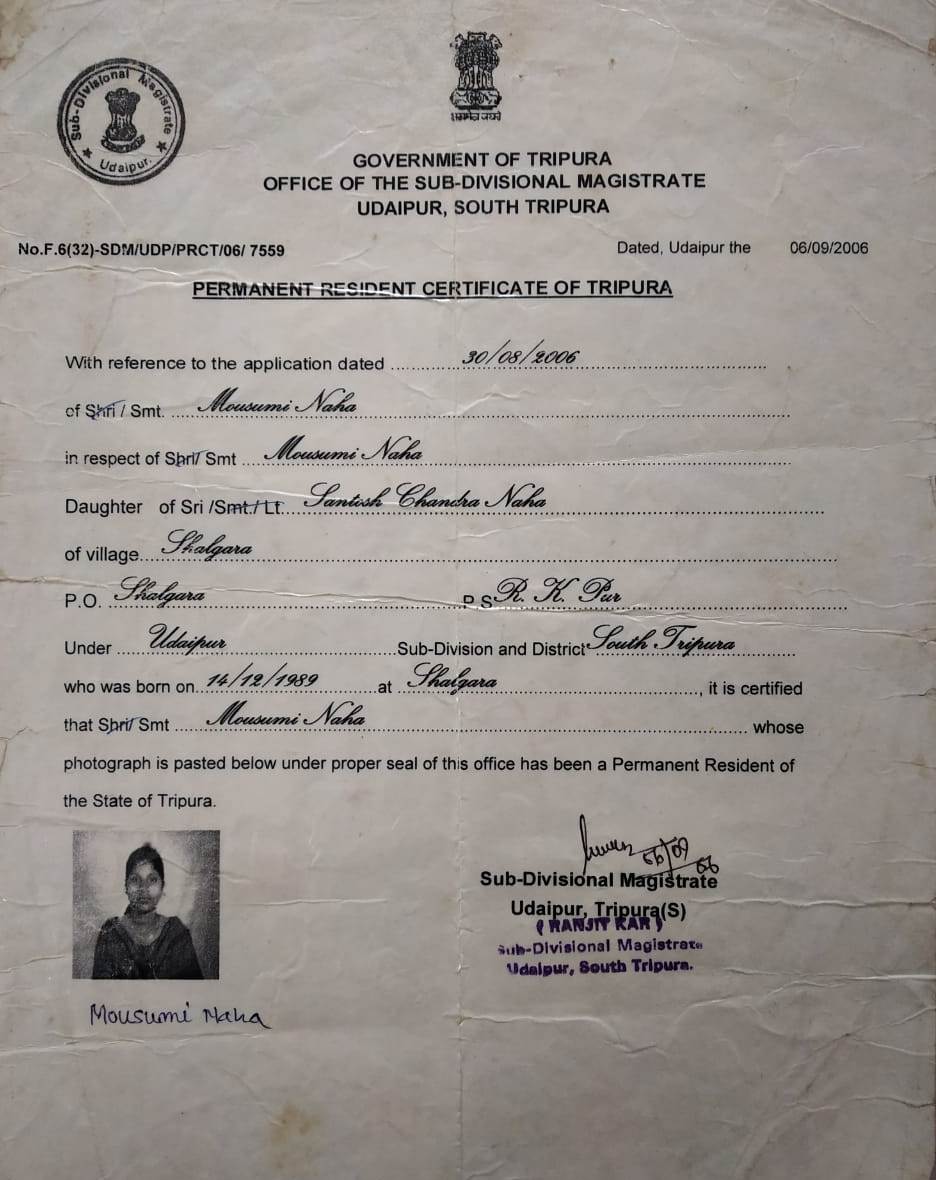 Sub-Divisional Magistrate
★ Udaipur. ★
सत्यमेव जयते
GOVERNMENT OF TRIPURA
OFFICE OF THE SUB-DIVISIONAL MAGISTRATE
UDAIPUR, SOUTH TRIPURA
No.F.6(32)-SDM/UDP/PRCT/06/ 7559 Dated, Udaipur the 06/09/2006
PERMANENT RESIDENT CERTIFICATE OF TRIPURA
With reference to the application dated 30/08/2006
of Shri / Smt. Mousumi Naha
in respect of Shri/ Smt Mousumi Naha
Daughter of Sri /Smt./ Lt. Santosh Chandra Naha
of village. Shalgara
P.O. Shalgara P.S R. K. Pur
Under Udaipur Sub-Division and District South Tripura
who was born on 14/12/1989 at Shalgara, it is certified
that Shri/ Smt Mousumi Naha whose
photograph is pasted below under proper seal of this office has been a Permanent Resident of
the State of Tripura.
06/09
06
Sub-Divisional Magistrate
Udaipur, Tripura(S)
( RANJIT KAR )
Sub-Divisional Magistrate
Udaipur, South Tripura.
Mousumi Naha